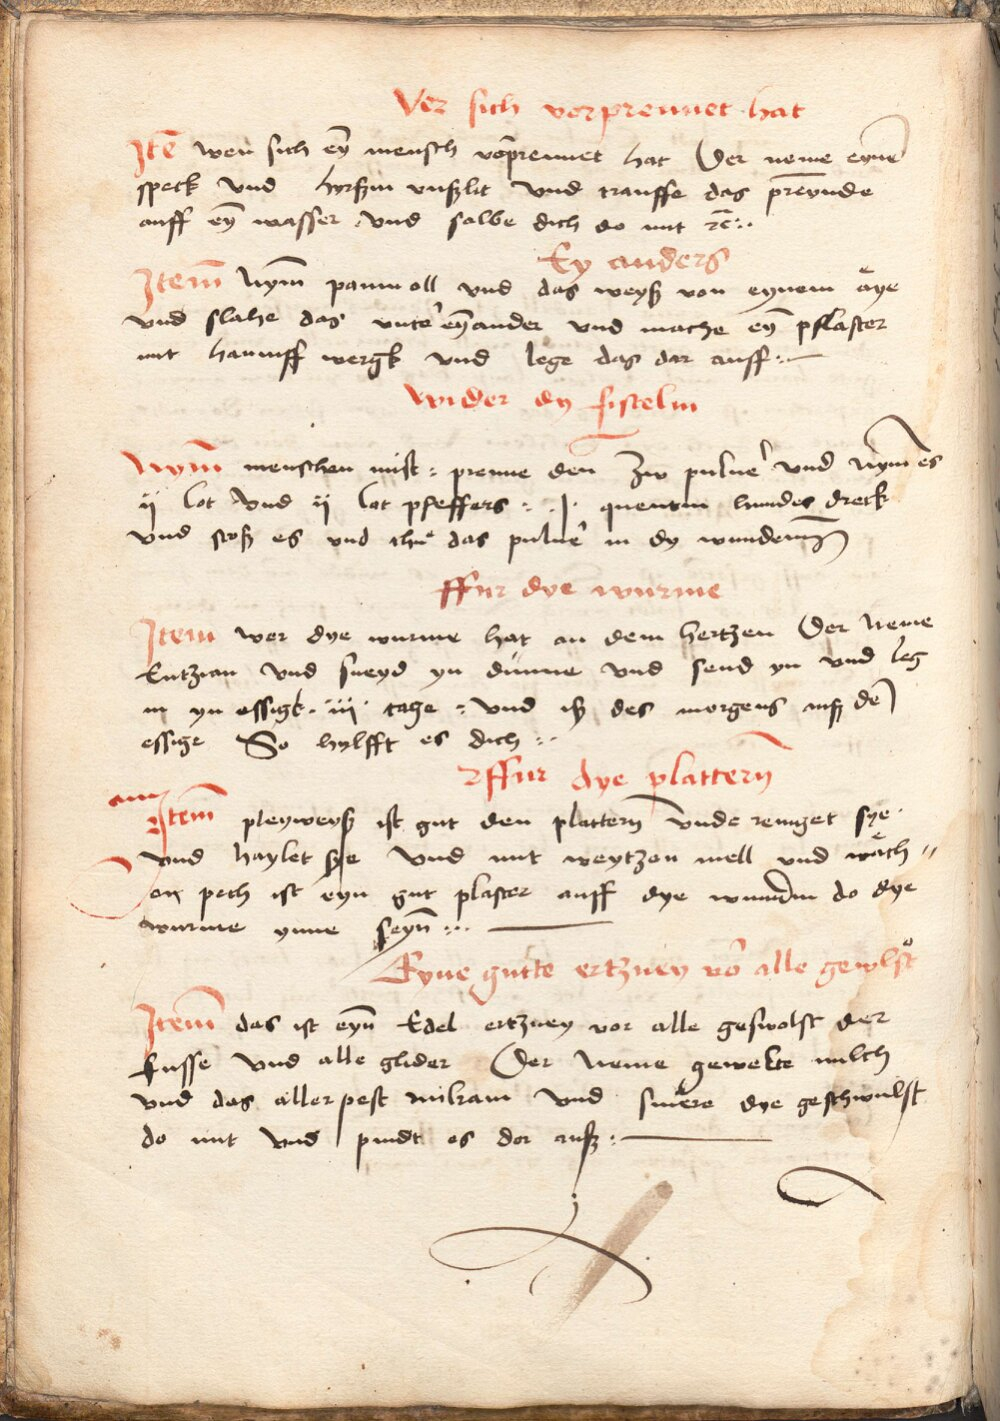 Wer sich verprennet hat
Itē wen sich eȳ mensch vōprennet hat Der neme eynē
speck vnd hyrßin vnßlit vnd trauffe das prēynde
auff eȳ wasser vnd salbe dich do mit ꝛc̄:.
Ey anders
Item̄ Nym̄ pamwoll vnd das weyß von eynem äye
vnd slahe das vnte' eȳander vnd mache eȳ pflaster
mit hanniff wergk vnd lege das dar auff :—
Wider dy fistelin
Nym̄ menschen mist : prenne den zw pulue' vnd Nym̄ es
ij lot vnd ij lot pfeffers : . j . quentin hundes dreck
vnd stoß es vnd thue das pulue' in dy wunden
ffur dye wurme
Item wer dye wurme hat an dem hertzen Der Neme
Entzian vnd sneyd yn dünne vnd send yn vnd leg
in yn essigk . iij . tage : vnd iß des morgens auß dē
essige So hylfft es dich :.
ffur dye plattern̄
Item̄ pleyweyß ist gut den plattern̄ vnde reniget sye
vnd haylet sye vnd mit weytzen mell vnd wäch //
en pech ist eyn gut plaster auff dye wunden do dye
wurme ynne seyn̄ :.
Eyne gutte ertzney vō alle gewlst
Item̄ das ist eyn̄ Edel ertzney vor alle geswolst der
fusse vnd alle glider Der neme gewelte milch
vnd das aller pest milram vnd smere dye geschwulst
do mit vnd pindt es dor auff :—